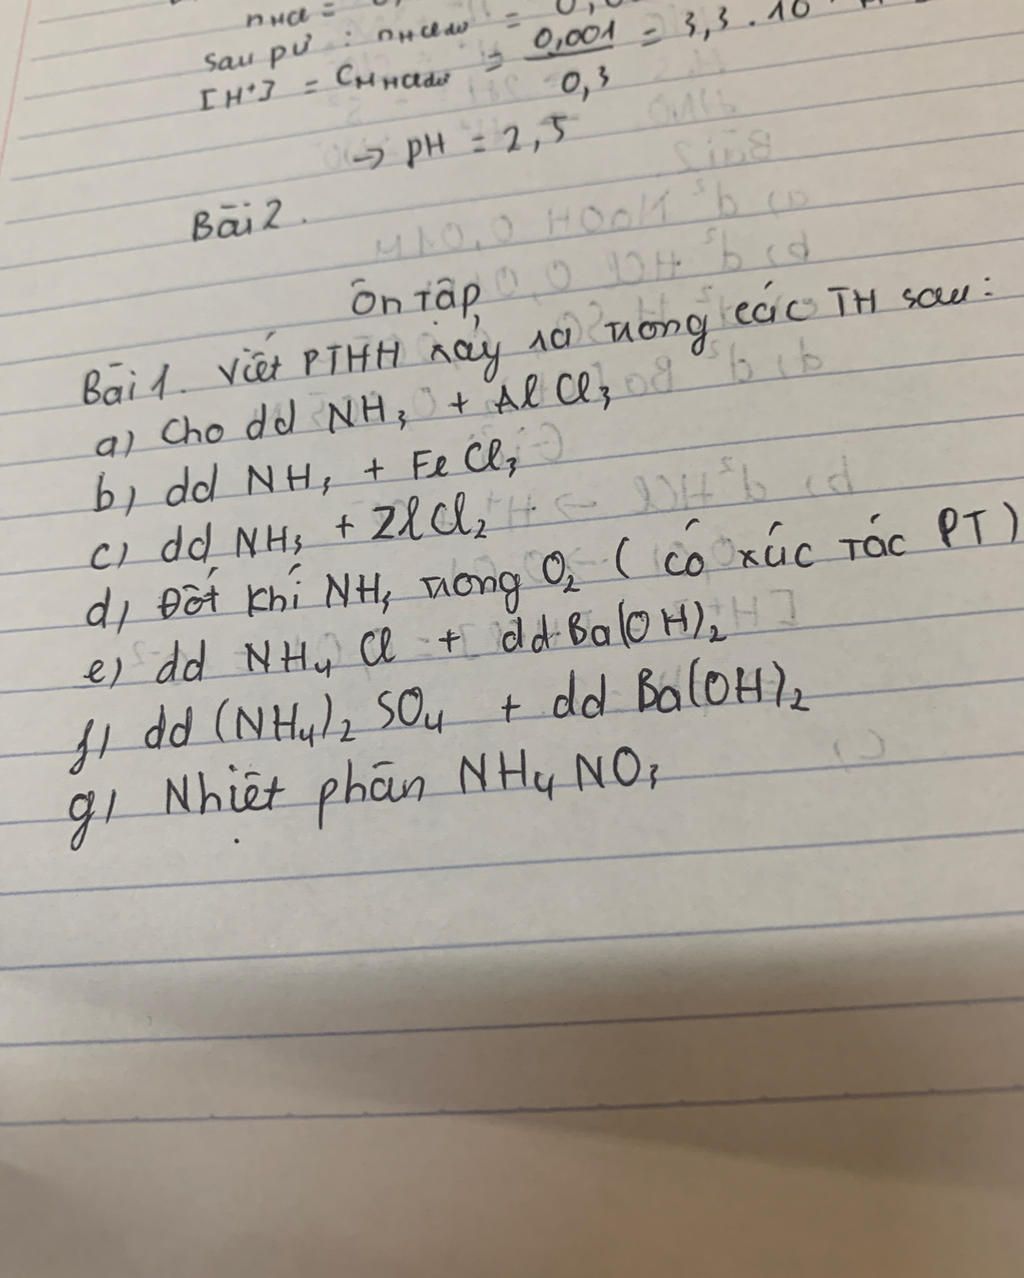 nHCl =
sau pư : nHCl dư = 0,
[H⁺] = CM HCl dư = 0,001 / 0,3 = 3,3 . 10
→ pH = 2,5
Bài 2.
Ôn tập
Bài 1. Viết PTHH xảy ra trong các TH sau:
a) Cho dd NH₃ + AlCl₃
b) dd NH₃ + FeCl₃
c) dd NH₃ + ZlCl₂
d) Đốt khí NH₃ trong O₂ ( có xúc tác PT)
e) dd NH₄Cl + dd Ba(OH)₂
f) dd (NH₄)₂SO₄ + dd Ba(OH)₂
g) Nhiệt phân NH₄NO₃